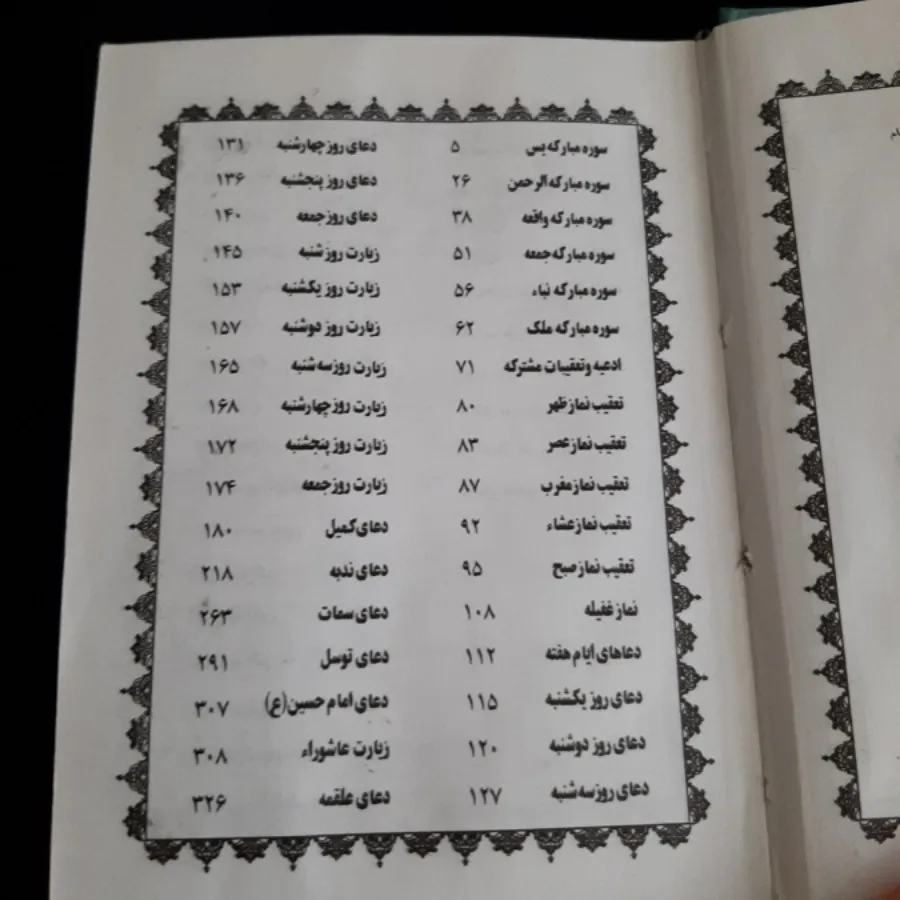 سوره مبارکه یس ۵
سوره مبارکه الرحمن ۲۶
سوره مبارکه واقعه ۳۸
سوره مبارکه جمعه ۵۱
سوره مبارکه نباء ۵۶
سوره مبارکه ملک ۶۲
ادعیه و تعقیبات مشترکه ۷۱
تعقیب نماز ظهر ۸۰
تعقیب نماز عصر ۸۳
تعقیب نماز مغرب ۸۷
تعقیب نماز عشاء ۹۲
تعقیب نماز صبح ۹۵
نماز غفیله ۱۰۸
دعاهای ایام هفته ۱۱۲
دعای روز یکشنبه ۱۱۵
دعای روز دوشنبه ۱۲۰
دعای روز سه شنبه ۱۲۷
دعای روز چهارشنبه ۱۳۱
دعای روز پنجشنبه ۱۳۶
دعای روز جمعه ۱۴۰
زیارت روز شنبه ۱۴۵
زیارت روز یکشنبه ۱۵۳
زیارت روز دوشنبه ۱۵۷
زیارت روز سه شنبه ۱۶۵
زیارت روز چهارشنبه ۱۶۸
زیارت روز پنجشنبه ۱۷۲
زیارت روز جمعه ۱۷۴
دعای کمیل ۱۸۰
دعای ندبه ۲۱۸
دعای سمات ۲۶۳
دعای توسل ۲۹۱
دعای امام حسین(ع) ۳۰۷
زیارت عاشوراء ۳۰۸
دعای علقمه ۳۲۶